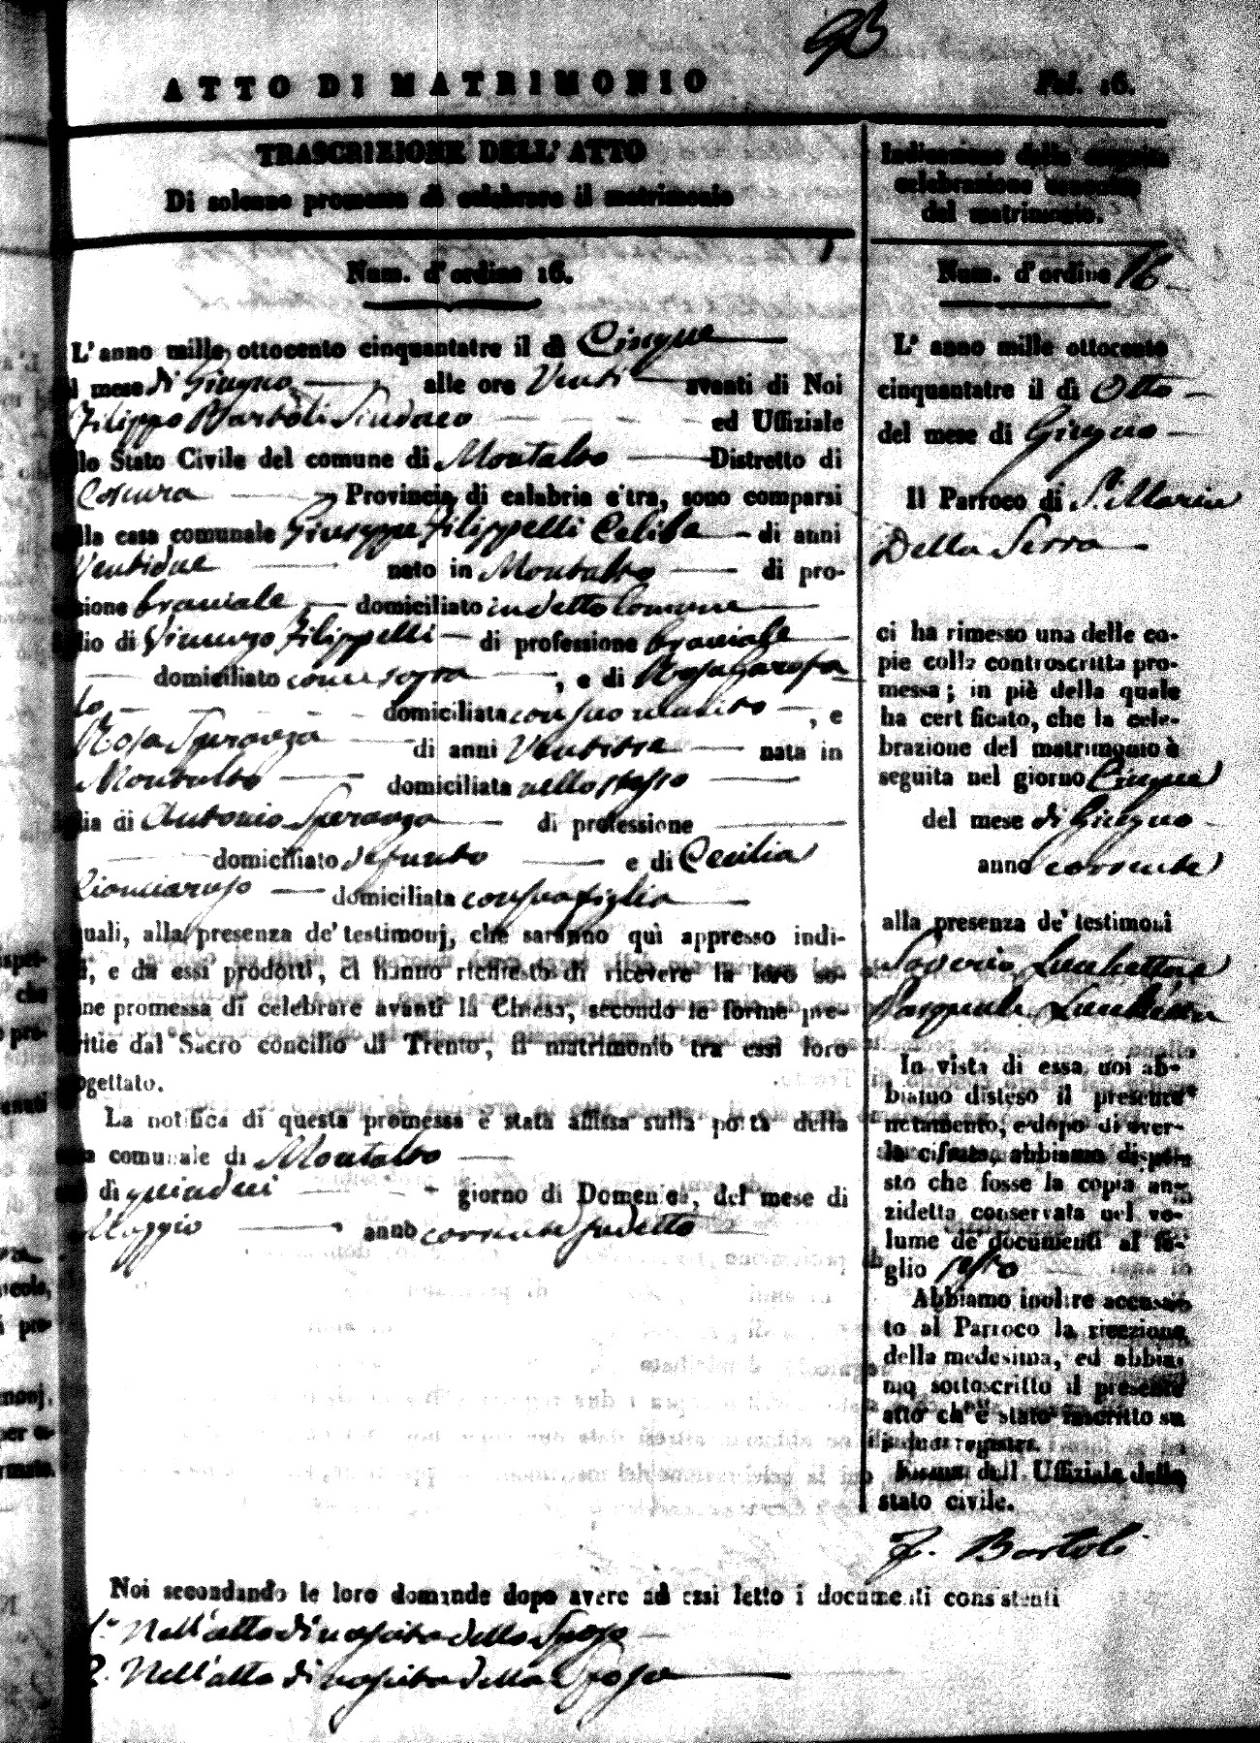 93
ATTO DI MATRIMONIO
Fol. 16.
TRASCRIZIONE DELL' ATTO
Di solenne promessa di celebrare il matrimonio
Num. d'ordine 16.
L'anno mille ottocento cinquantatre il dì Cinque
l mese di Giugno alle ore Venti avanti di Noi
Filippo Bartoli Sindaco ed Uffiziale
llo Stato Civile del comune di Montalto Distretto di
Cosenza Provincia di calabria c'tra, sono comparsi
lla casa comunale Giuseppe Filippelli Celibe di anni
Ventidue nato in Montalto di pro-
sione braciale domiciliato in detto Comune
glio di Vincenzo Filippelli di professione braciale
domiciliato come sopra , e di Rosa Garofa
lo, domiciliata con suo marito , e
Rosa Speranza di anni Ventitre nata in
Montalto domiciliata nello stesso
glia di Antonio Speranza di professione
domiciliato defunto e di Cecilia
domiciliata con sua figlia
quali, alla presenza de' testimonj, che saranno quì appresso indi-
ti, e da essi prodotti, ci hanno richiesto di ricevere la loro so-
nne promessa di celebrare avanti la Chiesa, secondo le forme pre-
ritie dal Sacro concilio di Trento, il matrimonio tra essi loro
ogettato.
La notifica di questa promessa è stata affissa sulla porta della
sa comunale di Montalto
dì quindici giorno di Domenica, del mese di
Maggio anno corrente sudetto
Noi secondando le loro domande dopo avere ad essi letto i documenti consistenti
1.° Nell'atto di nascita dello Sposo
2. Nell'atto di nascita della Sposa
Indicazione della seguita
celebrazione canonica
del matrimonio.
Num. d'ordine 16
L' anno mille ottocento
cinquantatre il dì Otto
del mese di Giugno
Il Parroco di S. Maria
Della Serra
ci ha rimesso una delle co-
pie colla controscritta pro-
messa; in piè della quale
ha cert ficato, che la cele-
brazione del matrimonio è
seguita nel giorno Cinque
del mese di Giugno
anno corrente
alla presenza de' testimoni
Saverio Lucchetta
Pasquale Lucchetta
In vista di essa noi ab-
biamo disteso il presente
notamento, e dopo di aver-
la cifrata, abbiamo dispo-
sto che fosse la copia an-
zidetta conservata nel vo-
lume de' documenti al fo-
glio sesto
Abbiamo inoltre accusa-
to al Parroco la ricezione
della medesima, ed abbia-
mo sottoscritto il presente
atto ch' è stato inscritto su
i due registri.
Firma dell' Uffiziale dello
stato civile.
F. Bartoli